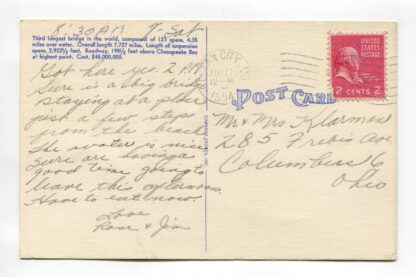 8:30 A.M. Sat
Third longest bridge in the world, composed of 123 spans, 4.35
miles over water. Overall length 7.727 miles. Length of suspension
spans, 2,922½ feet. Roadway, 198½ feet above Chesapeake Bay
at highest point. Cost, $45,000,000.
Got here yes. 2 P.M.
Sure is a big bridge
staying at a place
just a few steps
from the beach
The water is nice
Sure are having a
good time going to
leave this afternoon
Have to eat now.
Love
Rose & Jim
N CITY, MD
12 - M
1954
UNITED STATES
POSTAGE
2 CENTS 2
POST CARD
Mr & Mrs Klarman
285 Frebis Ave
Columbus 6
Ohio